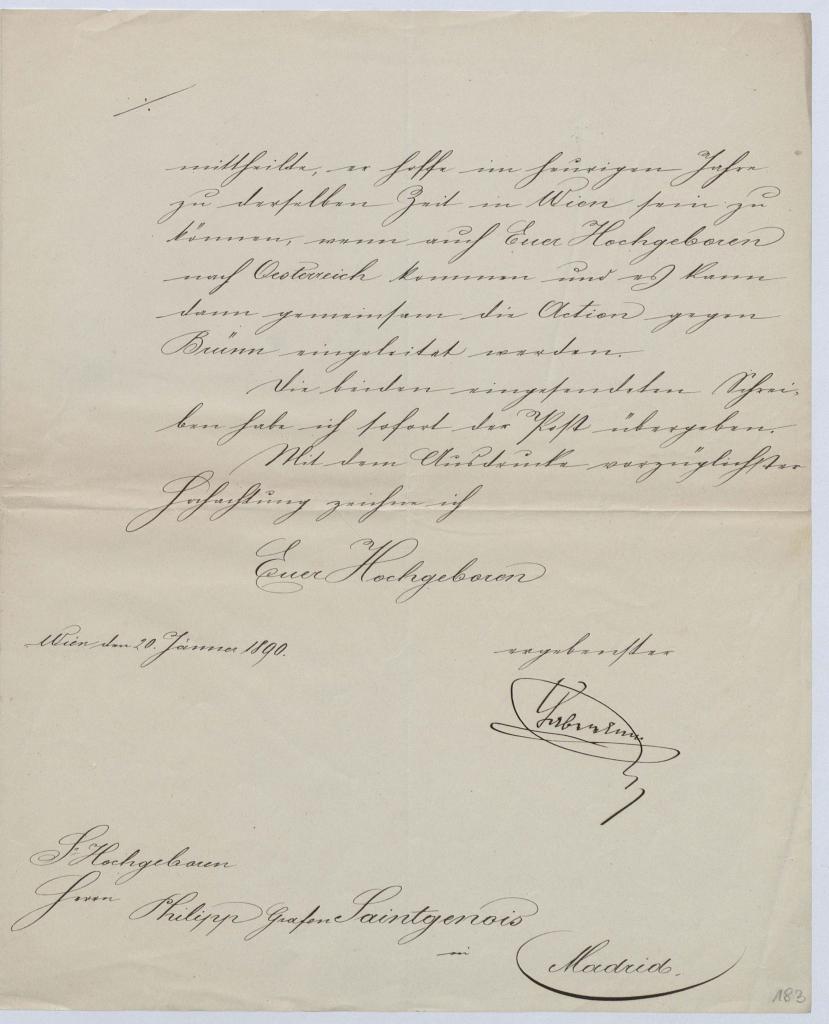 ./.
mittheilte, er hoffe im heurigen Jahre
zu derselben Zeit in Wien sein zu
können, wenn auch Euer Hochgeboren
nach Oesterreich kommen und es kann
dann gemeinsam die Action gegen
Brünn eingeleitet werden.
Die beiden eingesendeten Schrei-
ben habe ich sofort der Post übergeben.
Mit dem Ausdrucke vorzüglichster
Hochachtung zeichne ich
Euer Hochgeboren
Wien den 20. Jänner 1890.
ergebenster
Sr Hochgeboren
Herrn Philipp Grafen Saintgenois
in Madrid.
183